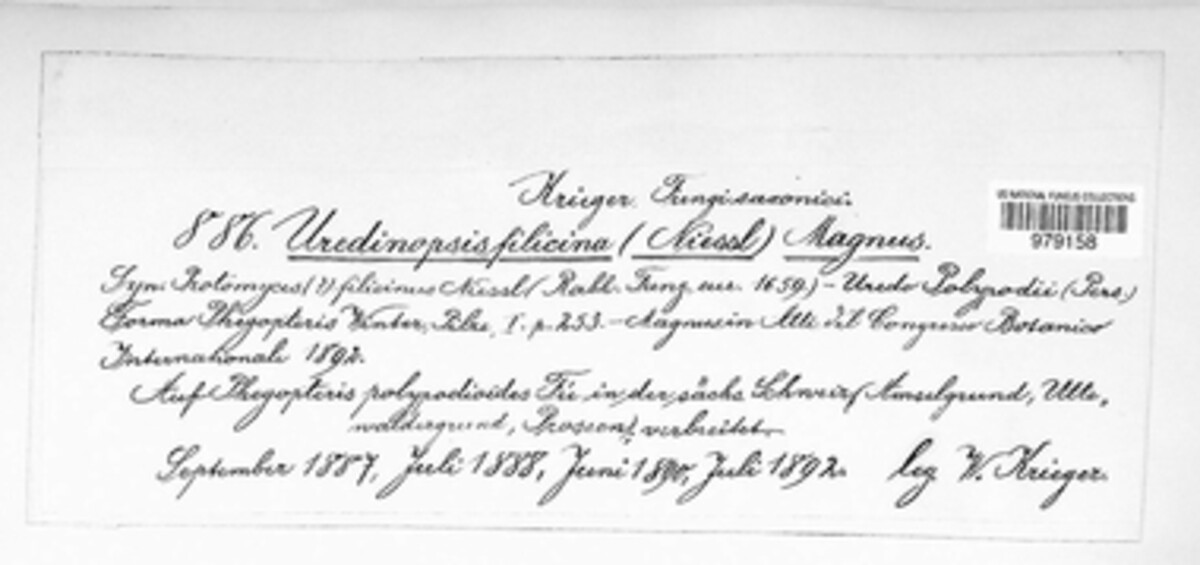 Krieger. Fungi saxonici.
US NATIONAL FUNGUS COLLECTIONS
979158
886. Uredinopsis filicina (Niessl) Magnus.
Syn. Protomyces (?) filicinus Niessl (Rabh. Fung. eur. 1659.) – Uredo Polypodii (Pers.)
Forma Phegopteris Winter, Pilze, I. p. 253. – Magnus in Atti del Congresso Botanico
Internationale 1892.
Auf Phegopteris polypodioides Fée in der sächs. Schweiz (Amselgrund, Utte,
waldergrund, Prossen), verbreitet.
September 1887, Juli 1888, Juni 1890, Juli 1892. leg. W. Krieger.